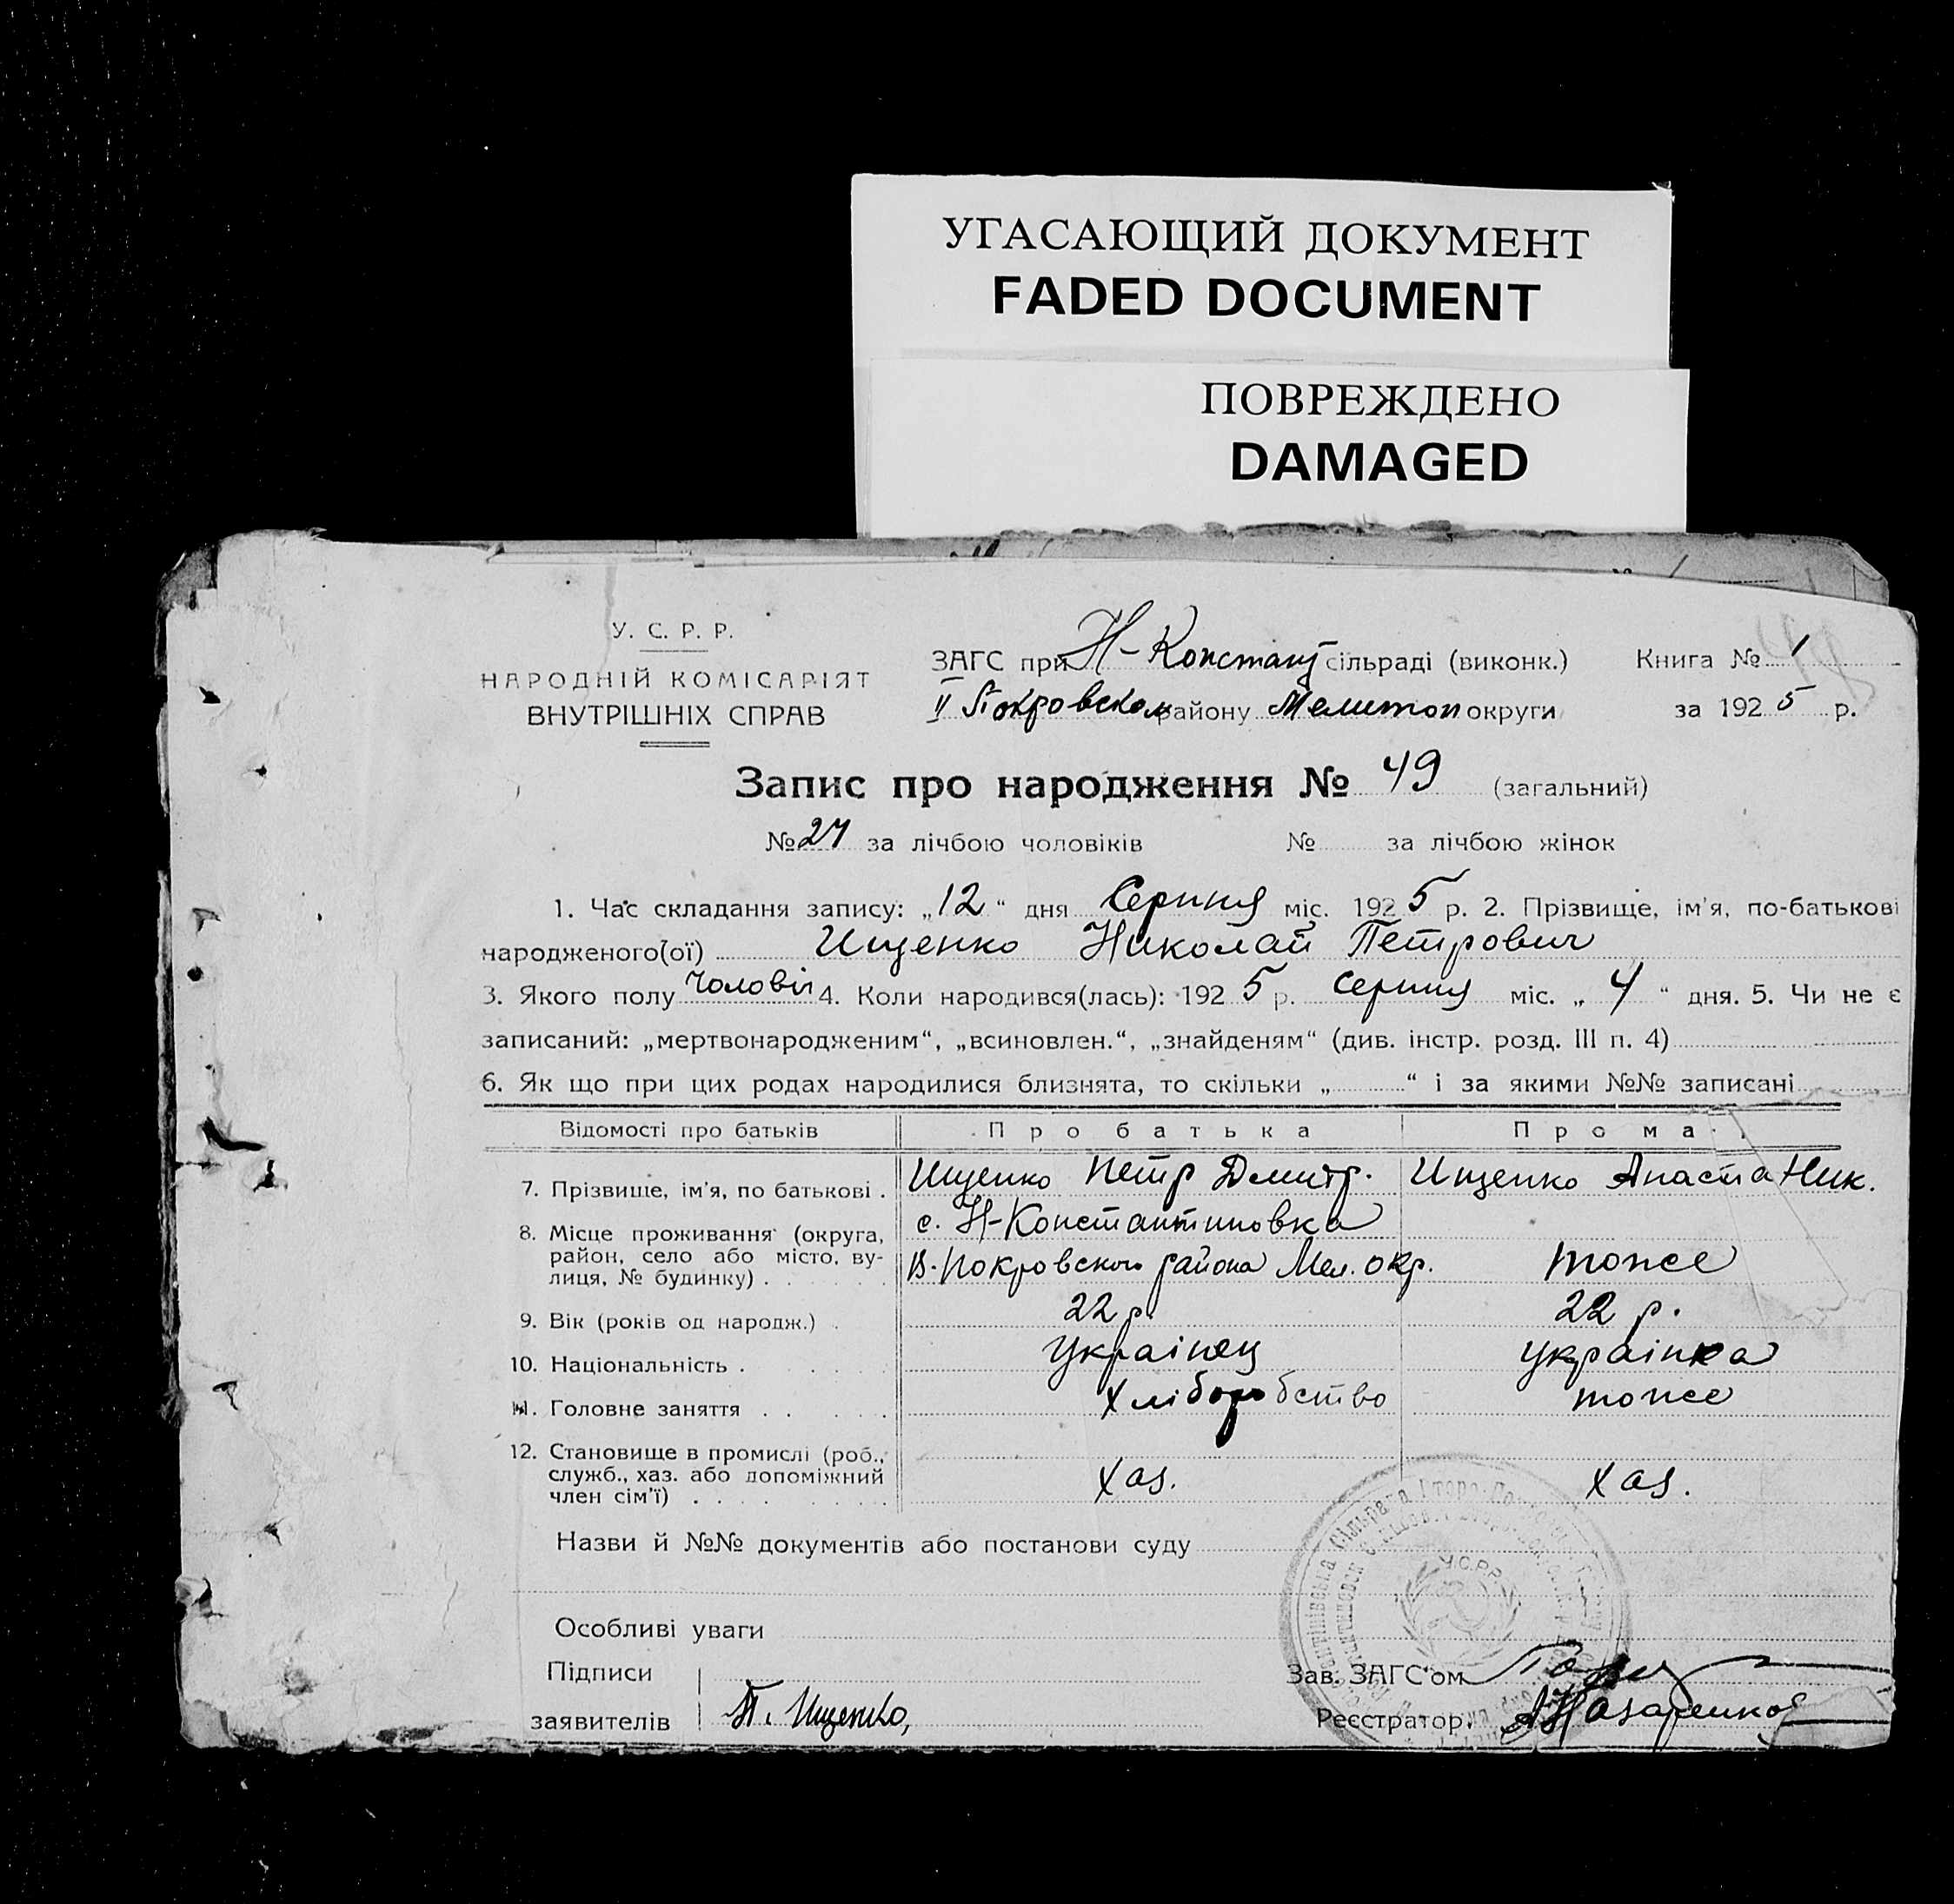 УГАСАЮЩИЙ ДОКУМЕНТ
FADED DOCUMENT
ПОВРЕЖДЕНО
DAMAGED
У. С. Р. Р.
НАРОДНІЙ КОМІСАРІЯТ
ВНУТРІШНІХ СПРАВ
ЗАГС при Н-Констант сільраді (виконк.) Книга № 1
II Покровском району Мелитоп округи за 1925 р.
Запис про народження № 49 (загальний)
№ 27 за лічбою чоловіків № за лічбою жінок
1. Час складання запису: „12“ дня Серпня міс. 1925 р. 2. Прізвище, ім'я, по-батькові
народженого(ої) Ищенко Николай Петрович
3. Якого полу Чоловіч 4. Коли народився(лась): 1925 р. Серпня міс. „4“ дня. 5. Чи не є
записаний: „мертвонародженим“, „всиновлен.“, „знайденям“ (див. інстр. розд. III п. 4)
6. Як що при цих родах народилися близнята, то скільки „ “ і за якими №№ записані
Відомості про батьків Про батька Про ма
7. Прізвище, ім'я, по батькові . Ищенко Петр Дмитр. Ищенко Анаста Ник.
8. Місце проживання (округа, с. Н-Константиновка
район, село або місто, ву- В-Покровского района Мел. окр. тоже
лиця, № будинку)
9. Вік (років од народж.) 22 р. 22 р.
10. Національність . Українец українка
11. Головне заняття . . Хліборобство тоже
12. Становище в промислі (роб.,
служб., хаз. або допоміжний Хаз. Хаз.
член сім'ї)
Назви й №№ документів або постанови суду
У.С.Р.Р.
Особливі уваги
Підписи Зав. ЗАГС'ом
заявителів П. Ищенко, Реєстратор. А Назаренко